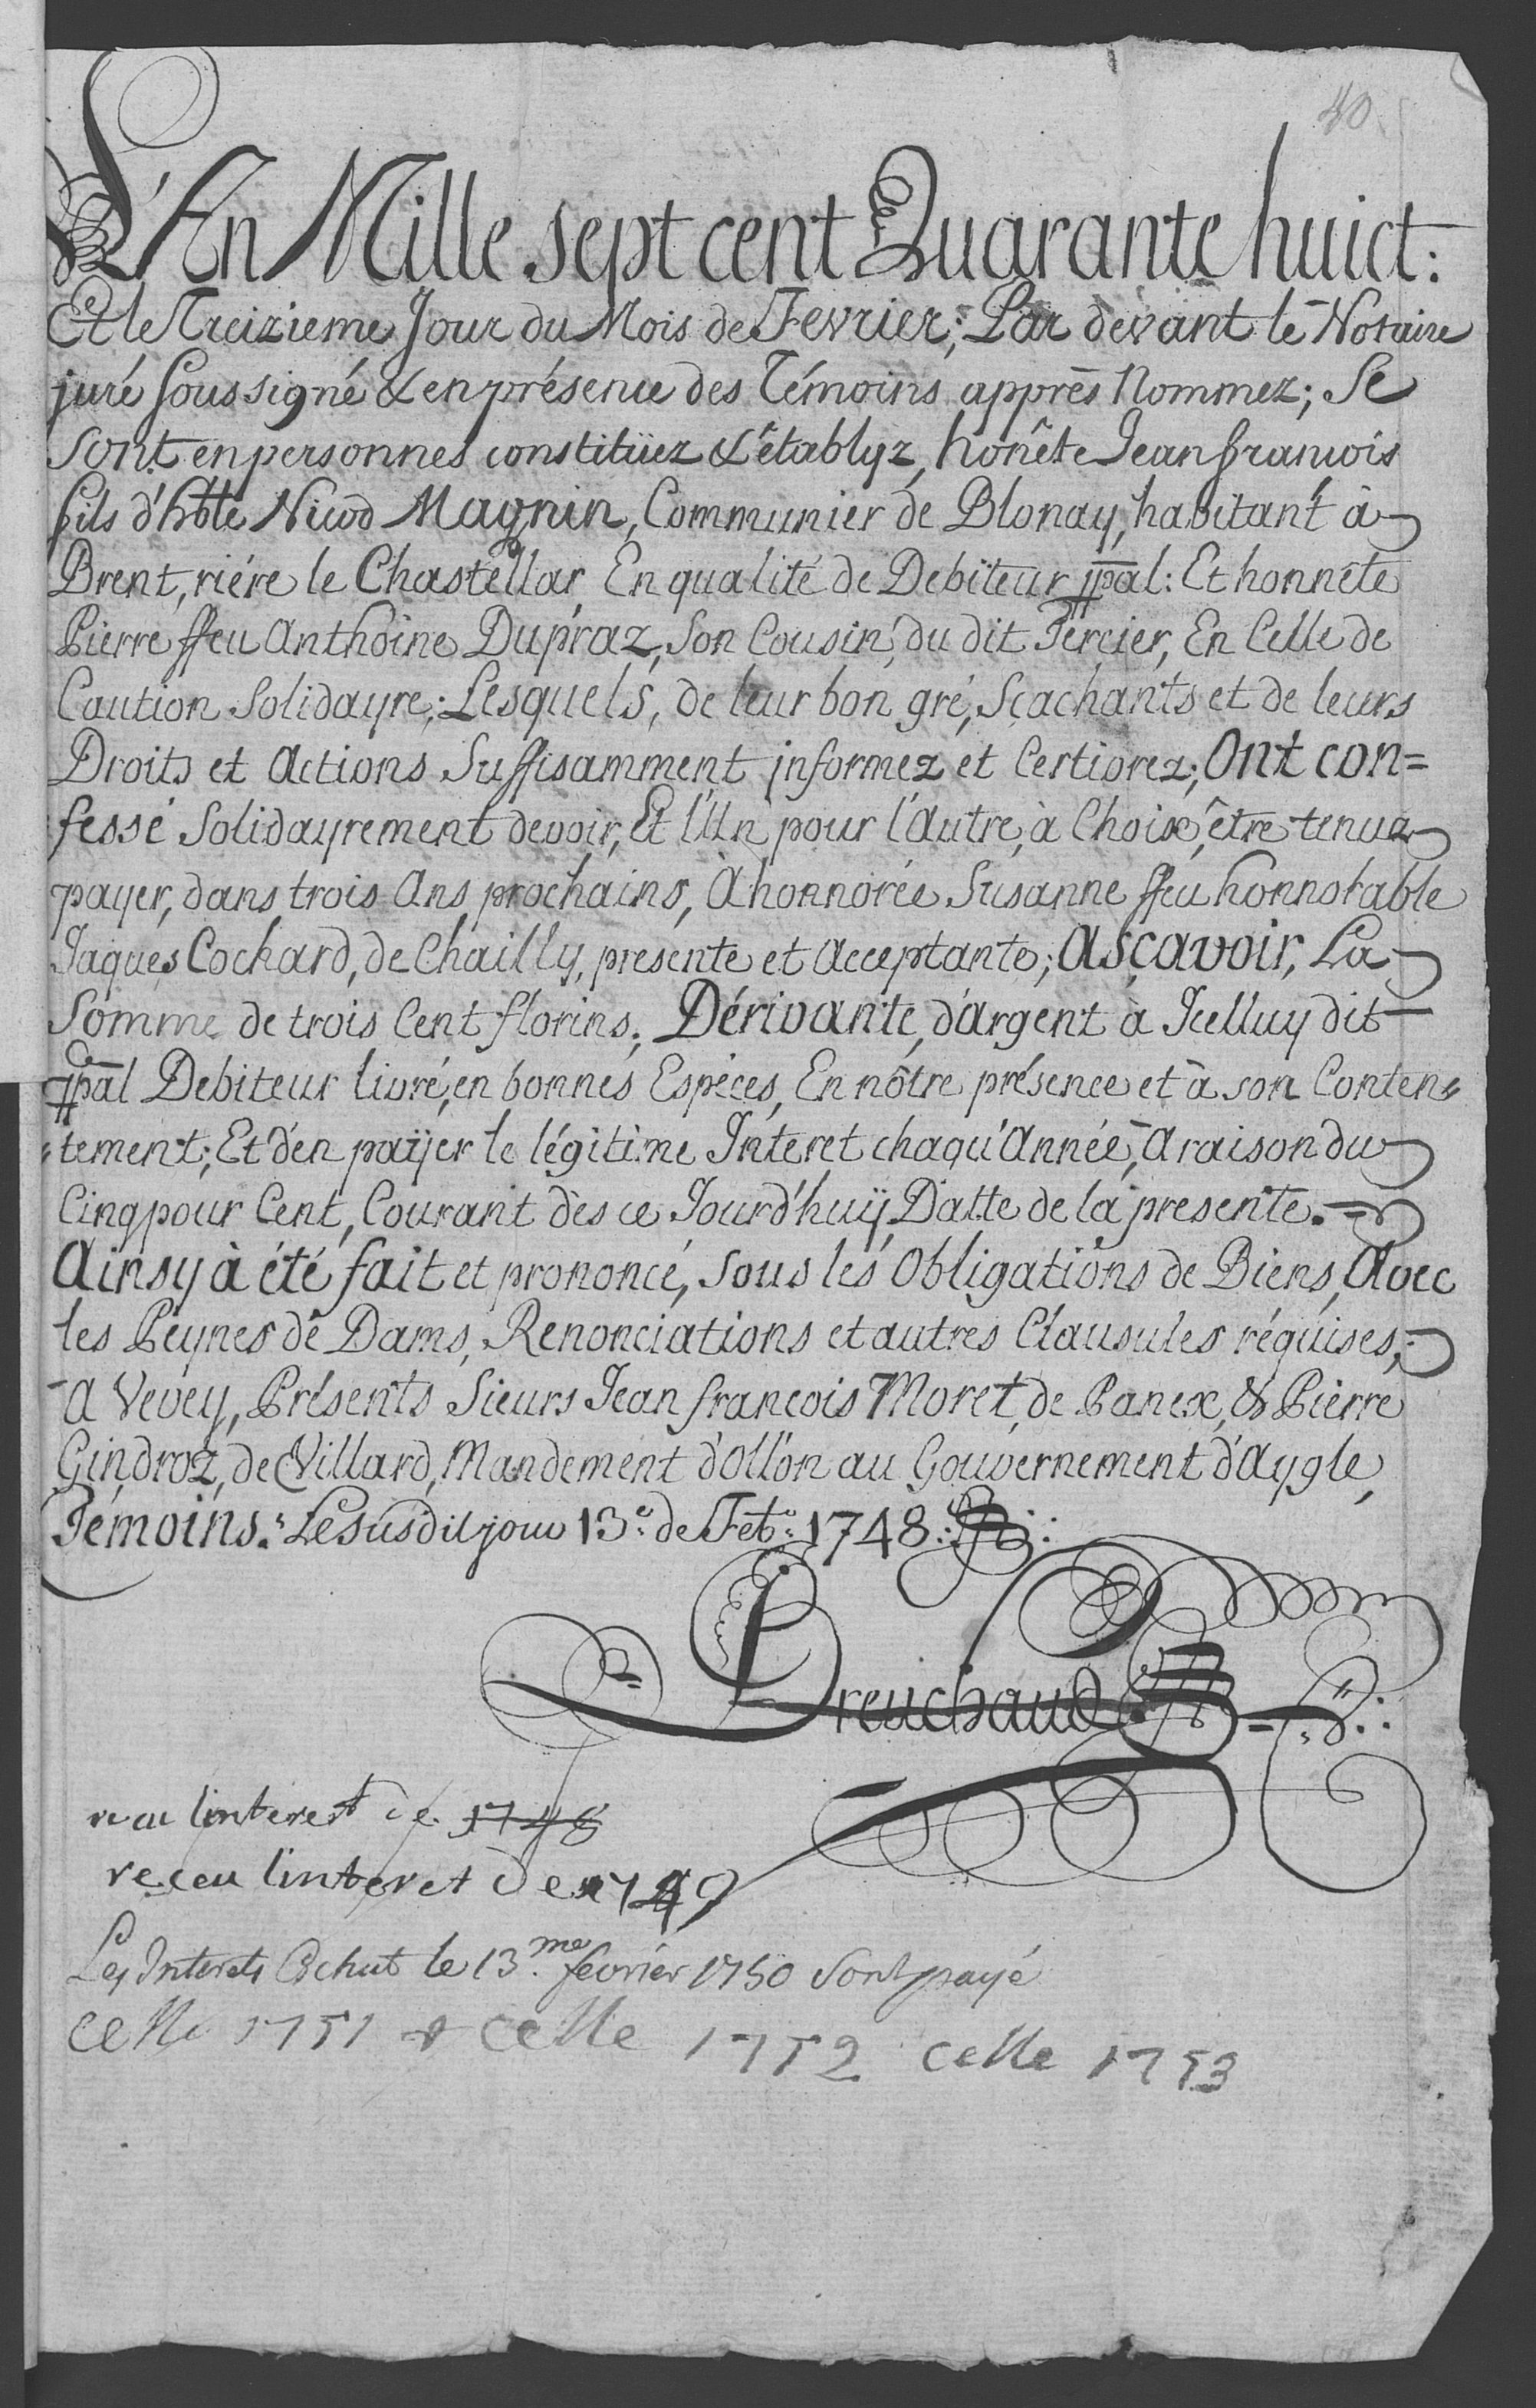 40
L'An Mille sept cent Quarante huict:
Et le Treizieme Jour du Mois de Fevrier; Par devant le Notaire
juré soussigné & en présence des Témoins apprès Nommez; Se
sont en personnes constitüez & êtablyz, honête Jean francois
fils d'hble Nicod Magnin, Communier de Blonay, habitant à
Brent, riére le Chastellar, En qualité de Debiteur ppal: Et honnête
Pierre ffeu Anthoine Dupraz, Son Cousin, du dit Tercier, En Celle de
Caution Solidayre; Lesquels, de leur bon gré, Sçachants et de leurs
Droits et Actions Suffisamment informez et Certiorez; Ont con=
fessé Solidayrement devoir, Et l'Un pour l'Autre, à Choix, être tenuz
payer, dans trois Ans prochains, A honnorée Susanne ffeu honnorable
Jaques Cochard, de Chailly, presente et Acceptante; Asçavoir, La
Somme de trois Cent florins; Dérivante, d'Argent à Icelluy dit
ppal Debiteur livré, en bonnes Espéces, En nôtre présence et à son Conten=
=tement; Et d'en paÿer le légitime Interet chaqu'Année, A raison du
Cinq pour Cent, Courant dès ce Jourd'huÿ, Datte de la presente.
Ainsy à été fait et prononcé, Sous les Obligations de Biens, Avec
les Peynes de Dams, Renonciations et autres Clausules réquises;
A Vevey, Présents Sieurs Jean francois Moret, de Panex, & Pierre
Gindroz, de Villard, Mandement d'Ollon au Gouvernement d'Aygle,
Témoins. Le susdit jour 13.e de Feb.: 1748.
Dreuchaud
receu linterest de 1748
receu linteret de 1749
Les Interets Echut le 13.me fevrier 1750 Sont payé
celle 1751 & celle 1752 celle 1753